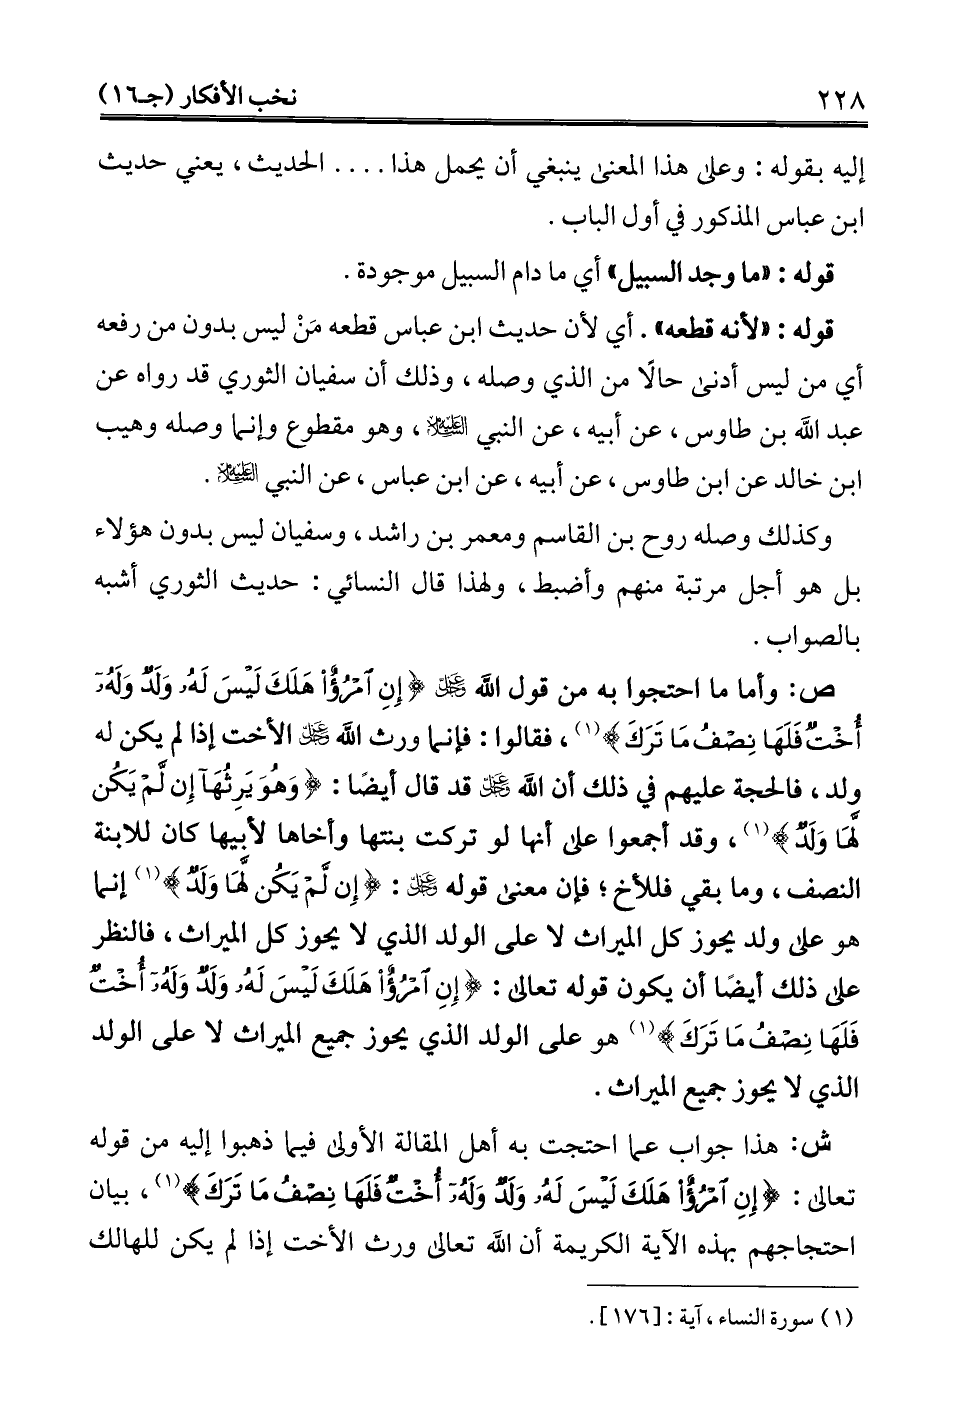 ٢٢٨ نخب الأفكار (جـ١٦)
إليه بقوله : وعلى هذا المعنى ينبغي أن يحمل هذا .... الحديث ، يعني حديث
ابن عباس المذكور في أول الباب .
قوله : «ما وجد السبيل» أي ما دام السبيل موجودة .
قوله : «لأنه قطعه» . أي لأن حديث ابن عباس قطعه مَنْ ليس بدون من رفعه
أي من ليس أدنى حالًا من الذي وصله ، وذلك أن سفيان الثوري قد رواه عن
عبد الله بن طاوس ، عن أبيه ، عن النبي عليه السلام ، وهو مقطوع وإنما وصله وهيب
ابن خالد عن ابن طاوس ، عن أبيه ، عن ابن عباس ، عن النبي عليه السلام .
وكذلك وصله روح بن القاسم ومعمر بن راشد ، وسفيان ليس بدون هؤلاء
بل هو أجل مرتبة منهم وأضبط ، ولهذا قال النسائي : حديث الثوري أشبه
بالصواب .
ص: وأما ما احتجوا به من قول الله عز وجل ﴿إِنِ ٱمْرُؤٌا۟ هَلَكَ لَيْسَ لَهُۥ وَلَدٌ وَلَهُۥٓ
أُخْتٌ فَلَهَا نِصْفُ مَا تَرَكَ﴾(١) ، فقالوا : فإنما ورث الله عز وجل الأخت إذا لم يكن له
ولد ، فالحجة عليهم في ذلك أن الله عز وجل قد قال أيضًا : ﴿وَهُوَ يَرِثُهَآ إِن لَّمْ يَكُن
لَّهَا وَلَدٌ﴾(١) ، وقد أجمعوا على أنها لو تركت بنتها وأخاها لأبيها كان للابنة
النصف ، وما بقي فللأخ ؛ فإن معنى قوله عز وجل : ﴿إِن لَّمْ يَكُن لَّهَا وَلَدٌ﴾(١) إنما
هو على ولد يحوز كل الميراث لا على الولد الذي لا يحوز كل الميراث ، فالنظر
على ذلك أيضًا أن يكون قوله تعالى : ﴿إِنِ ٱمْرُؤٌا۟ هَلَكَ لَيْسَ لَهُۥ وَلَدٌ وَلَهُۥٓ أُخْتٌ
فَلَهَا نِصْفُ مَا تَرَكَ﴾(١) هو على الولد الذي يحوز جميع الميراث لا على الولد
الذي لا يحوز جميع الميراث .
ش: هذا جواب عما احتجت به أهل المقالة الأولى فيما ذهبوا إليه من قوله
تعالى : ﴿إِنِ ٱمْرُؤٌا۟ هَلَكَ لَيْسَ لَهُۥ وَلَدٌ وَلَهُۥٓ أُخْتٌ فَلَهَا نِصْفُ مَا تَرَكَ﴾(١) ، بيان
احتجاجهم بهذه الآية الكريمة أن الله تعالى ورث الأخت إذا لم يكن للهالك
(١) سورة النساء ، آية : [١٧٦] .